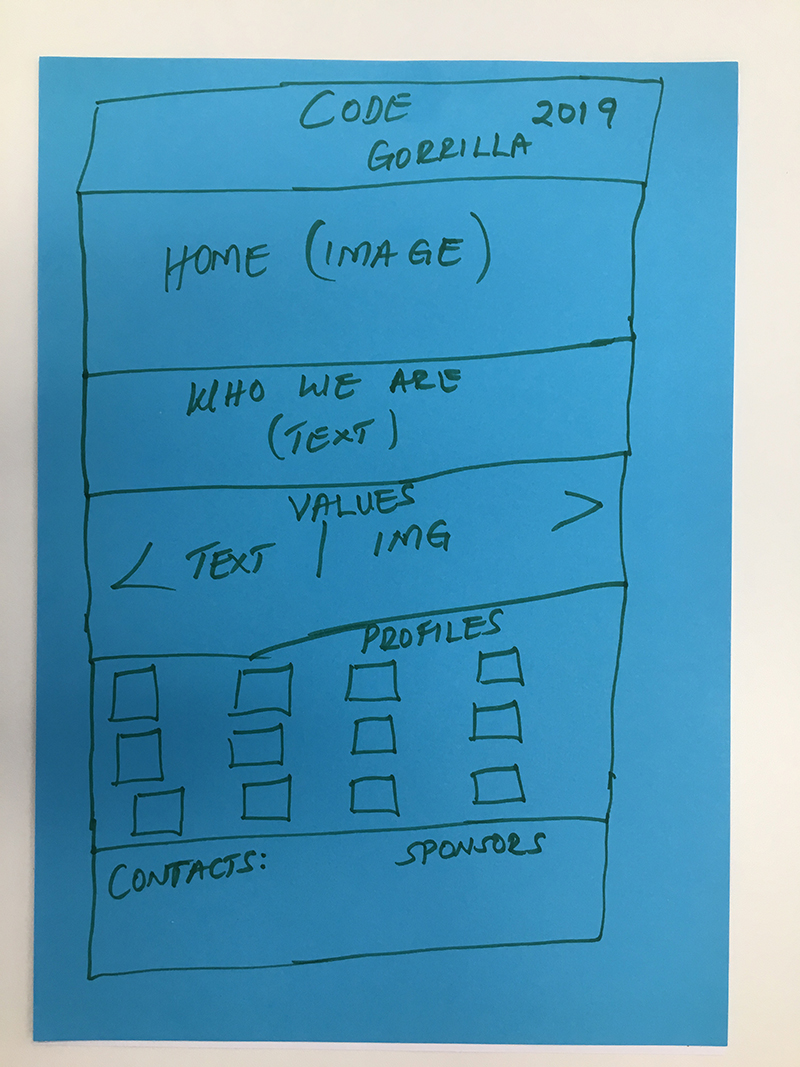 CODE 2019
GORRILLA
HOME (IMAGE)
WHO WE ARE
(TEXT)
VALUES
< TEXT | IMG >
PROFILES
CONTACTS: SPONSORS